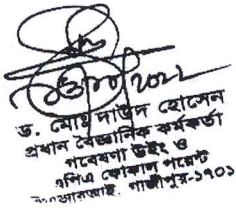 ড. মোঃ দাউদ হোসেন
প্রধান বৈজ্ঞানিক কর্মকর্তা
গবেষণা উইং ও
এপিএ ফোকাল পয়েন্ট
গাজীপুর-১৭০১